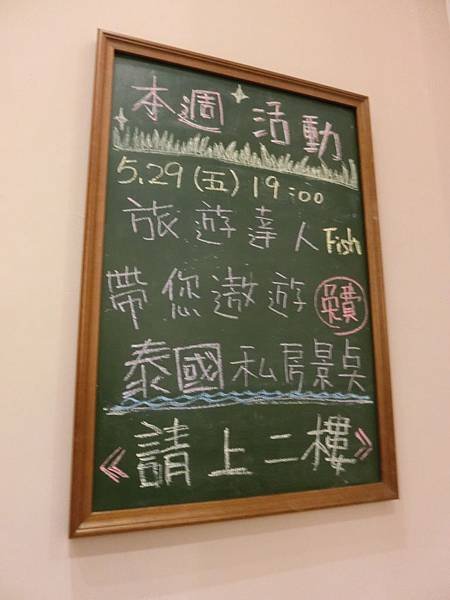 本週活動
5.29(五)19:00
旅遊達人Fish
帶您遨遊 免費
泰國私房景点
《請上二樓》